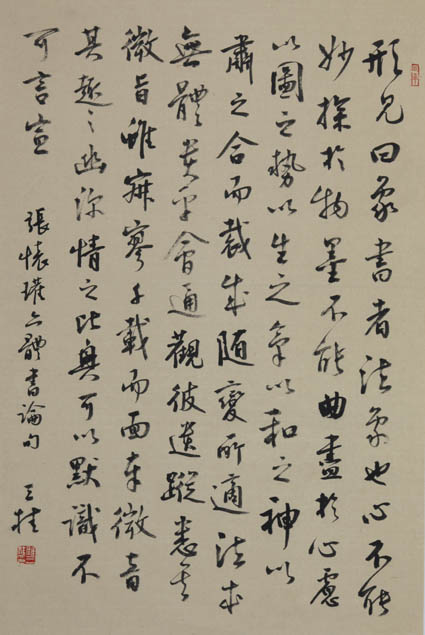 形見曰象書者法象也心不能
妙探於物墨不能曲盡於心慮
以圖之勢以生之氣以和之神以
肅之合而裁成随變所適法本
無體貴乎會通觀彼遺蹤悉其
微旨雖寂寥千載而面奉徽音
其趣之幽深情之比興可以默識不
可言宣
張懷瓘六體書論句